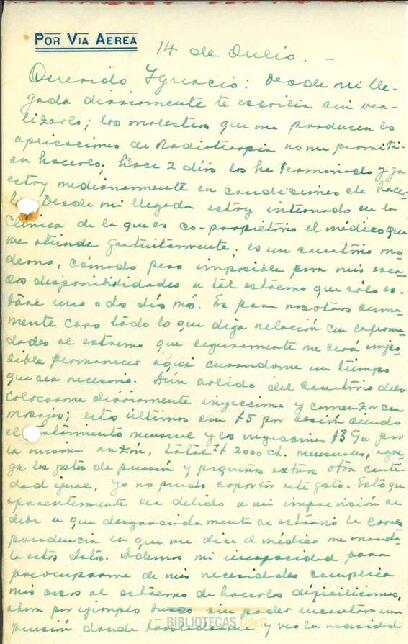 POR VIA AEREA
14 de Julio.-
Querido Ignacio: Desde mi lle-
gada diariamente te escribía sin rea-
lizarlo; las molestias que me producen las
aplicaciones de Radioterapia no me permití-
an hacerlo, hace 2 días las he terminado y ya
estoy medianamente en condiciones de hacer-
lo. Desde mi llegada estoy internado en la
Clínica de la que es co-propietario el médico que
me atiende gratuitamente, es un sanatorio mo-
derno, cómodo pero imposible para mis esca-
sas disponibilidades a tal extremo que sólo es-
taré uno o dos días más. Es para nosotros suma-
mente caro todo lo que diga relación con enferme-
dades al extremo que seguramente me será impo-
sible permanecer aquí curándome un tiempo
que sea necesario. Aún salido del sanatorio debo
colocarme diariamente inyecciones y comenzar con
masajes; estos últimos son $5 por sesión siendo
el tratamiento mensual y las inyecciones $3 c/u por
la misma razón, total $ 2000 ch. mensuales, agre-
ga los gastos de pensión y pequeños extras otra canti-
dad igual, yo no puedo soportar este gasto. Esto que
aparentemente es debido a mi imprevisión se
debe a que desgraciadamente se extravió la corres-
pondencia en que me dice el médico me manda-
ba estos datos. Además mi incapacidad para
preocuparme de mis necesidades complica
mis cosas al extremo de hacerlas dificilísimas,
ahora por ejemplo busco sin poder encontrar una
pensión donde
y veo la necesidad
BIBLIOTECAS